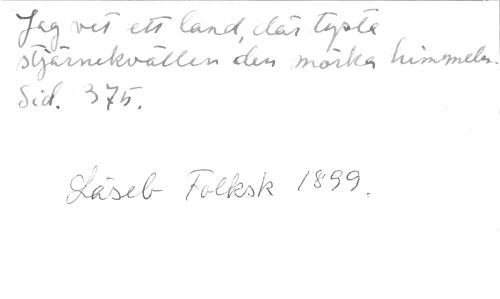 Jag vet ett land, där tysta
stjärnekvällen den mörka himmelen.
Sid. 375.
Läseb Folksk 1899.